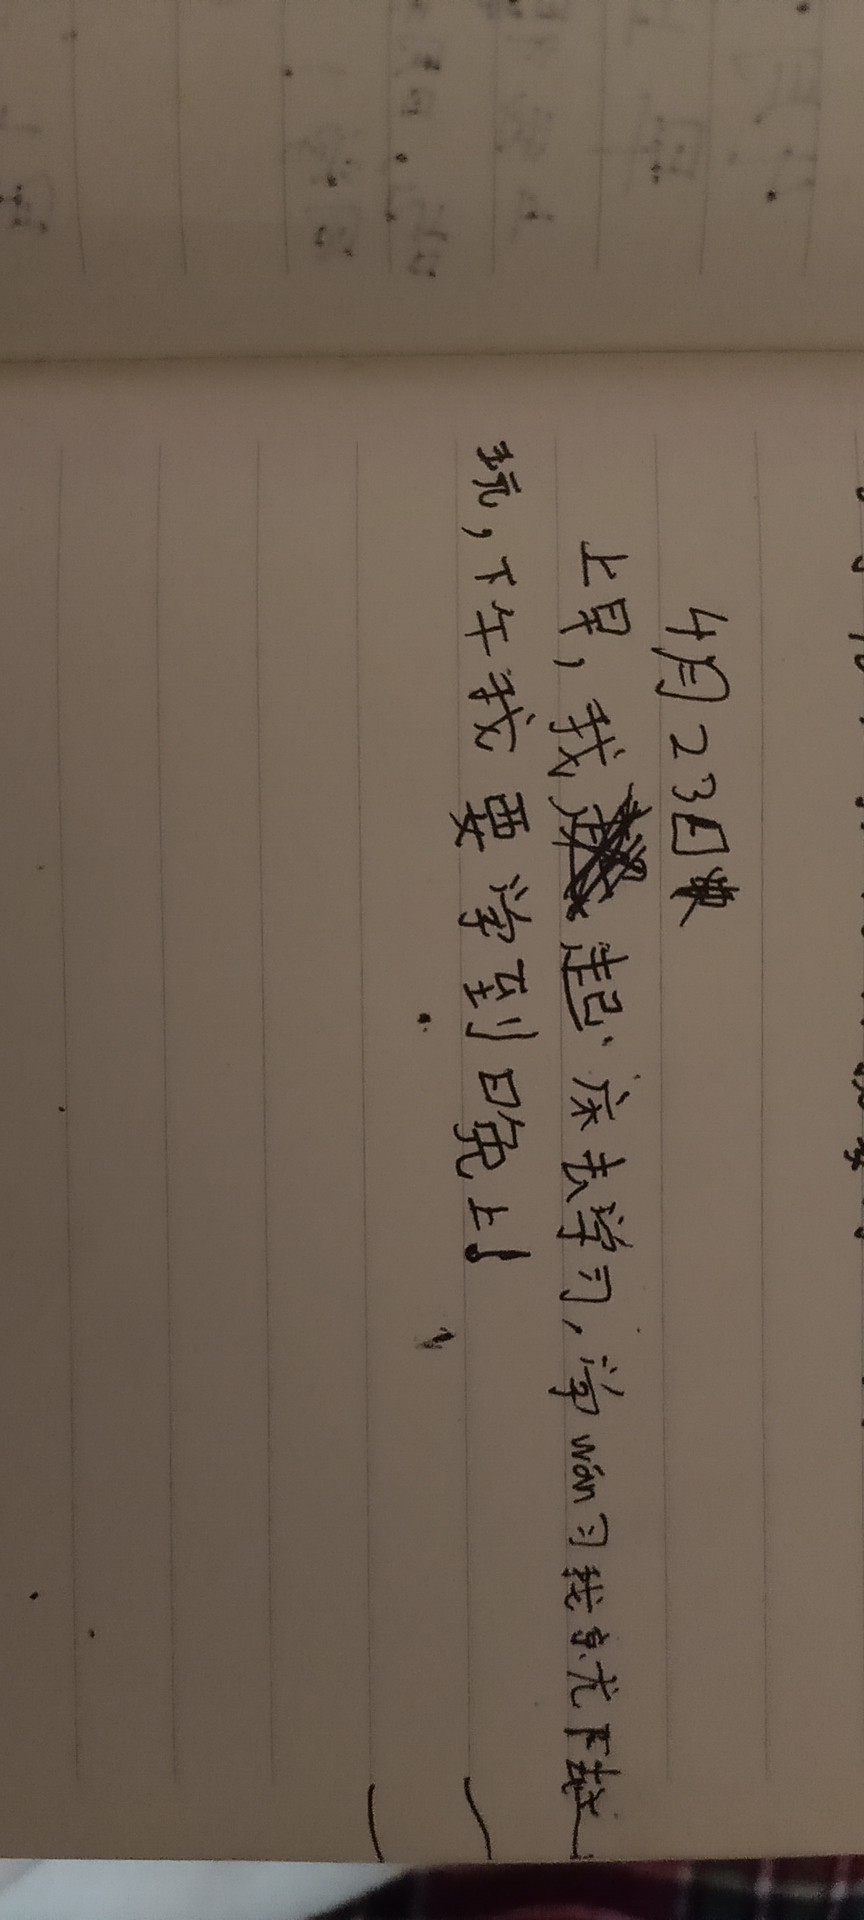 4月23日
上早，我起床去学习，学wán习我就下去
玩，下午我要学到晚上！